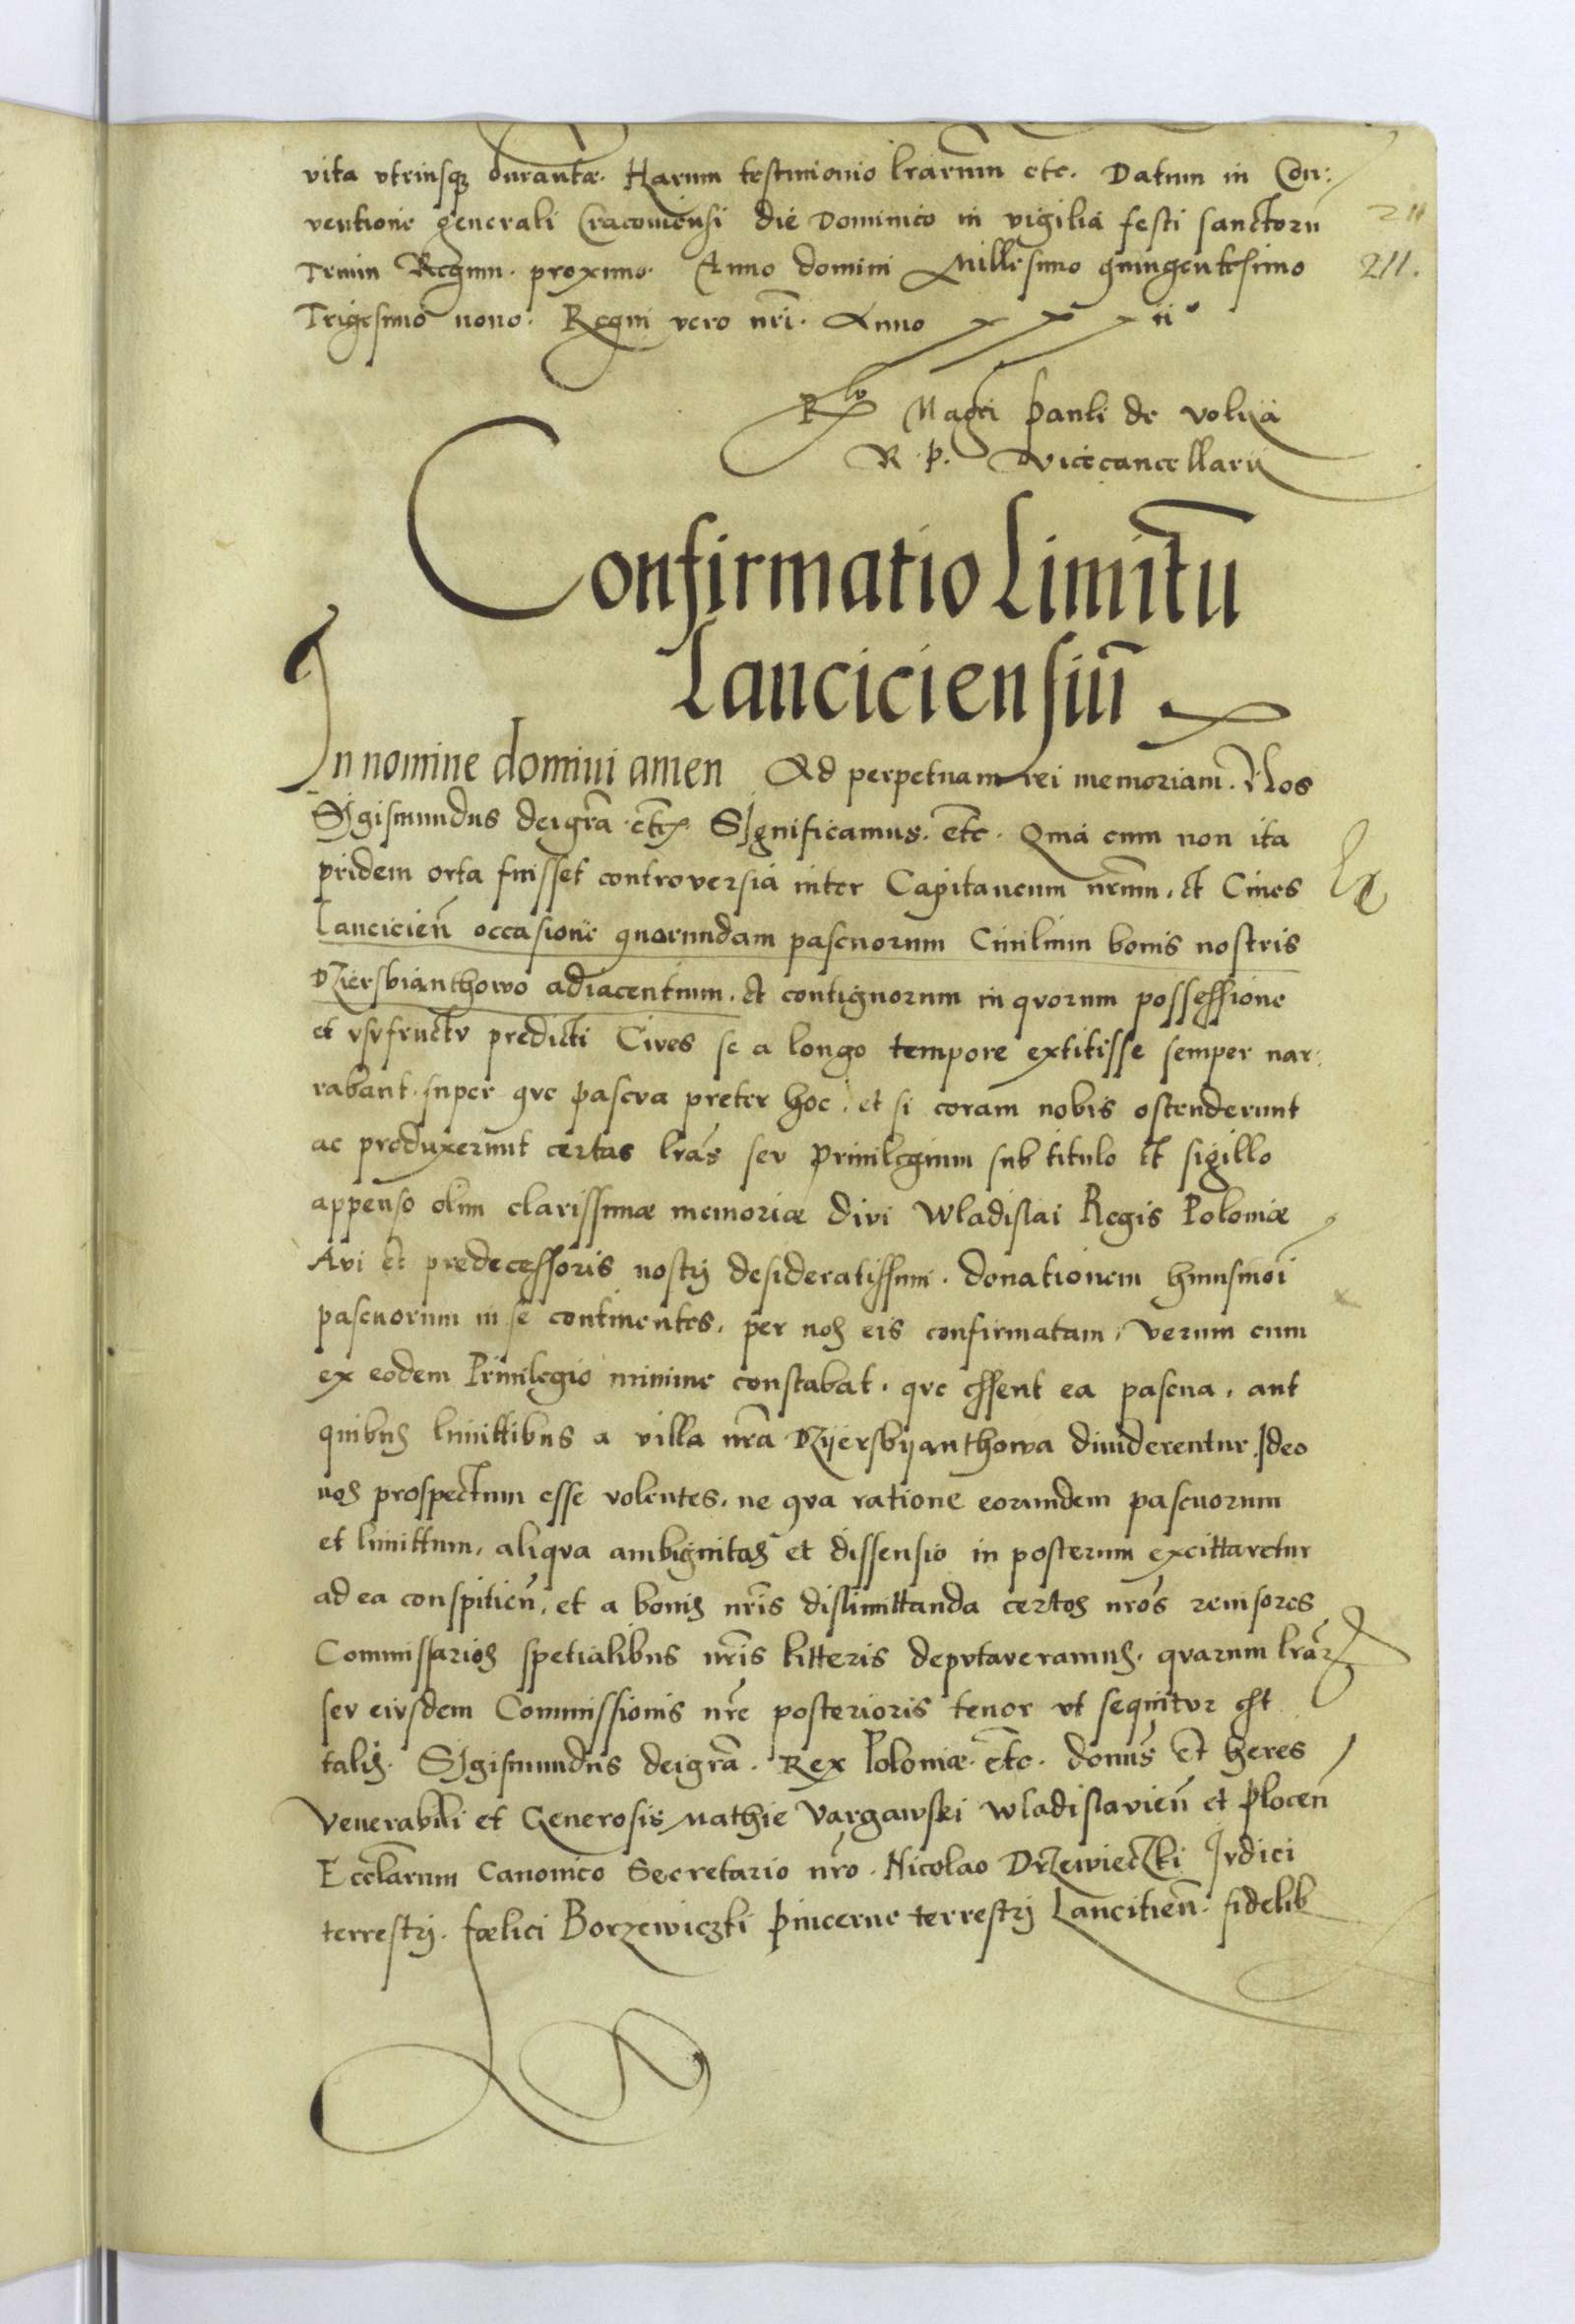 vita vtriusq durante. Harum testimonio lrarum etc. Datum in Con:
ventione generali Cracoviensi die Dominico in vigilia festi sanctorū
211
Trium Regum. proximo. Anno domini Millesimo quingentesimo
211.
Trigesimo nono. Regni vero nrī. Anno xxxii°
Rlo Magci pauli de volija
R. p. vicecancellarij
Confirmatio Limitū
Lanciciensiū
In nomine domini amen Ad perpetuam rei memoriam. Nos
Sigismundus dei gra etc. Significamus. etc. Quia cum non ita
pridem orta fuisset controversia inter Capitaneum nrum. et Ciues
Lancicieñ occasione quorundam pascuorum Ciuilium bonis nostris
Dzierbianthowo adiacentium. et contiguorum in qvorum possessione
et vsvfructv predicti Cives se a longo tempore extitisse semper nar:
rabant. super qve pascva preter hoc. et si coram nobis ostenderunt
ac produxerunt certas lras sev priuilegium sub titulo et sigillo
appenso olim clarissimæ memoriæ divi Wladislai Regis Poloniæ
Avi et predecessoris nostrj desideratissimi. donationem huiusmoi
pascuorum in se continentes, per nos eis confirmatam, verum cum
ex eodem Priuilegio minime constabat. qve essent ea pascua, aut
quibus limittibus a villa nra Dzijersbijanthowa diuiderentur. Ideo
nos prospectum esse volentes, ne qva ratione eorundem pascuorum
et limittum, aliqva ambiguitas et dissensio in posterum excittaretur
ad ea conspitieñ, et a bonis nris dislimittanda certos nros reuisores
Commissarios spetialibus nris litteris depvtaveramus. qvarum lrar
sev eivsdem Commissionis nre posterioris tenor vt sequitvr est
talis. Sigismundus dei gra. Rex Poloniæ. etc. donus et heres
Venerabili et Generosis Mathie Vargawski Wladislavieñ et Plocen
Ecclarum Canonico Secretario nro. Nicolao Drzewieczki Jvdici
terrestrj. fœlici Borzewiczki pincerne terrestrj Lancitieñ. fidelib